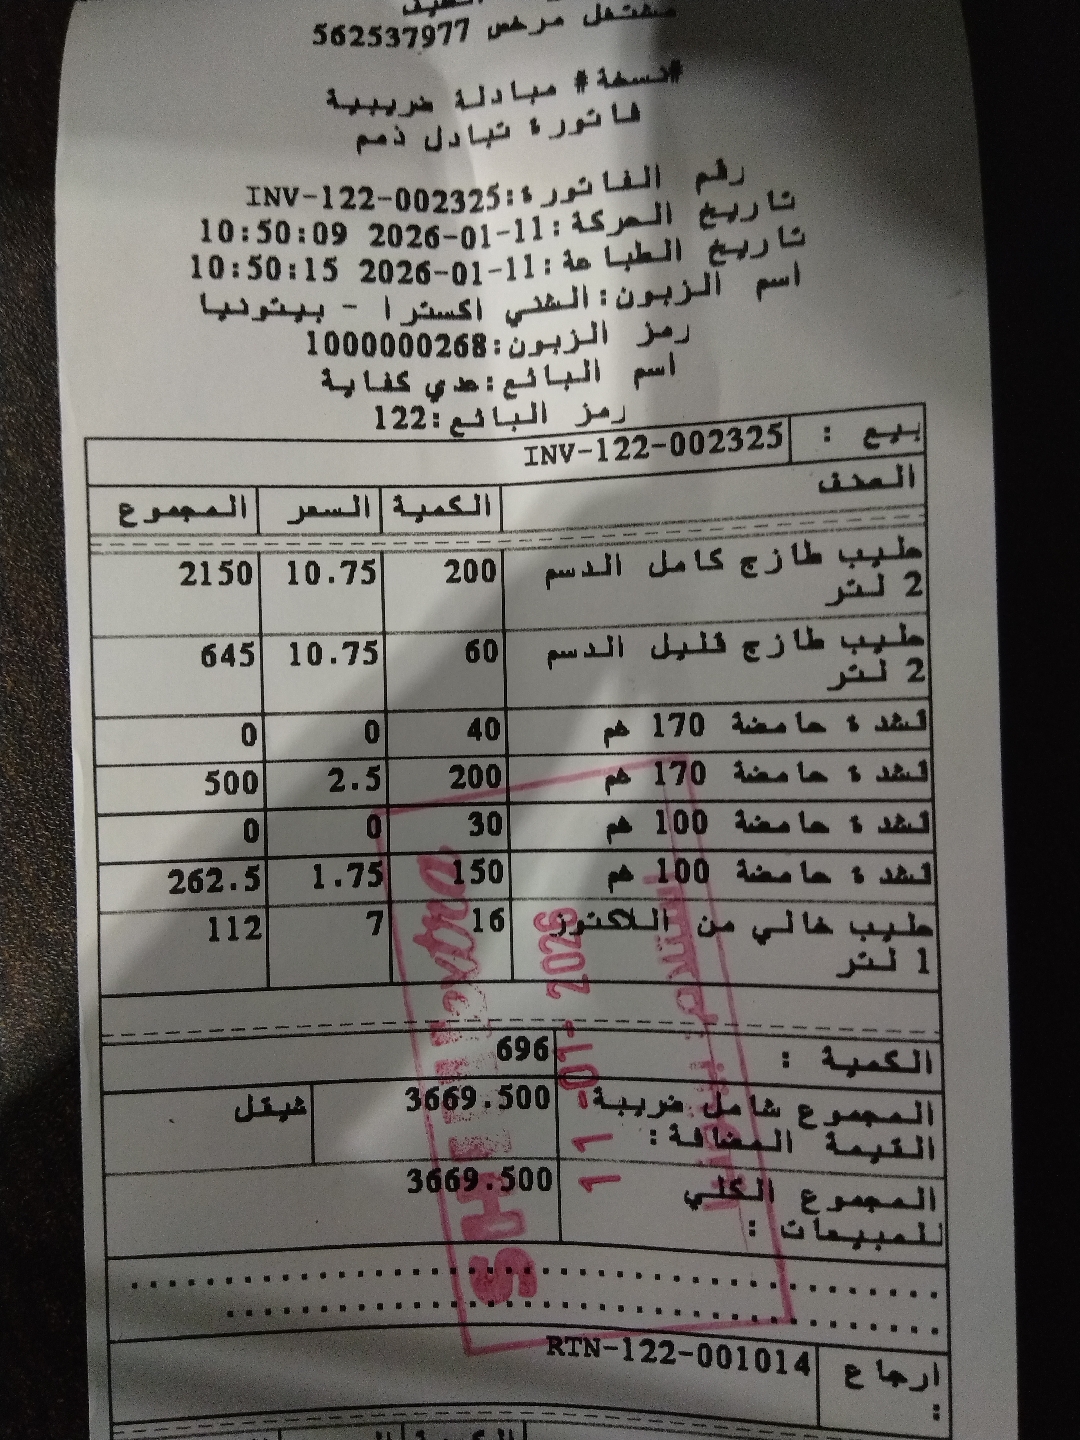 مشتغل مرخص 562537977
#نسخة# مبادلة ضريبية
فاتورة تبادل ذمم
رقم الفاتورة:INV-122-002325
تاريخ الحركة:2026-01-11 10:50:09
تاريخ الطباعة:2026-01-11 10:50:15
اسم الزبون:الشني اكسترا - بيتونيا
رمز الزبون:1000000268
اسم البائع:عدي كفاية
رمز البائع:122
بيع : INV-122-002325
الصنف الكمية السعر المجموع
حليب طازج كامل الدسم 200 10.75 2150
2 لتر
حليب طازج قليل الدسم 60 10.75 645
2 لتر
قشدة حامضة 170 غم 40 0 0
قشدة حامضة 170 غم 200 2.5 500
قشدة حامضة 100 غم 30 0 0
قشدة حامضة 100 غم 150 1.75 262.5
حليب خالي من اللاكتوز 16 7 112
1 لتر
الكمية : 696
المجموع شامل ضريبة 3669.500 شيقل
القيمة المضافة:
المجموع الكلي 3669.500
للمبيعات :
ارجاع RTN-122-001014
:
11 -01- 2026